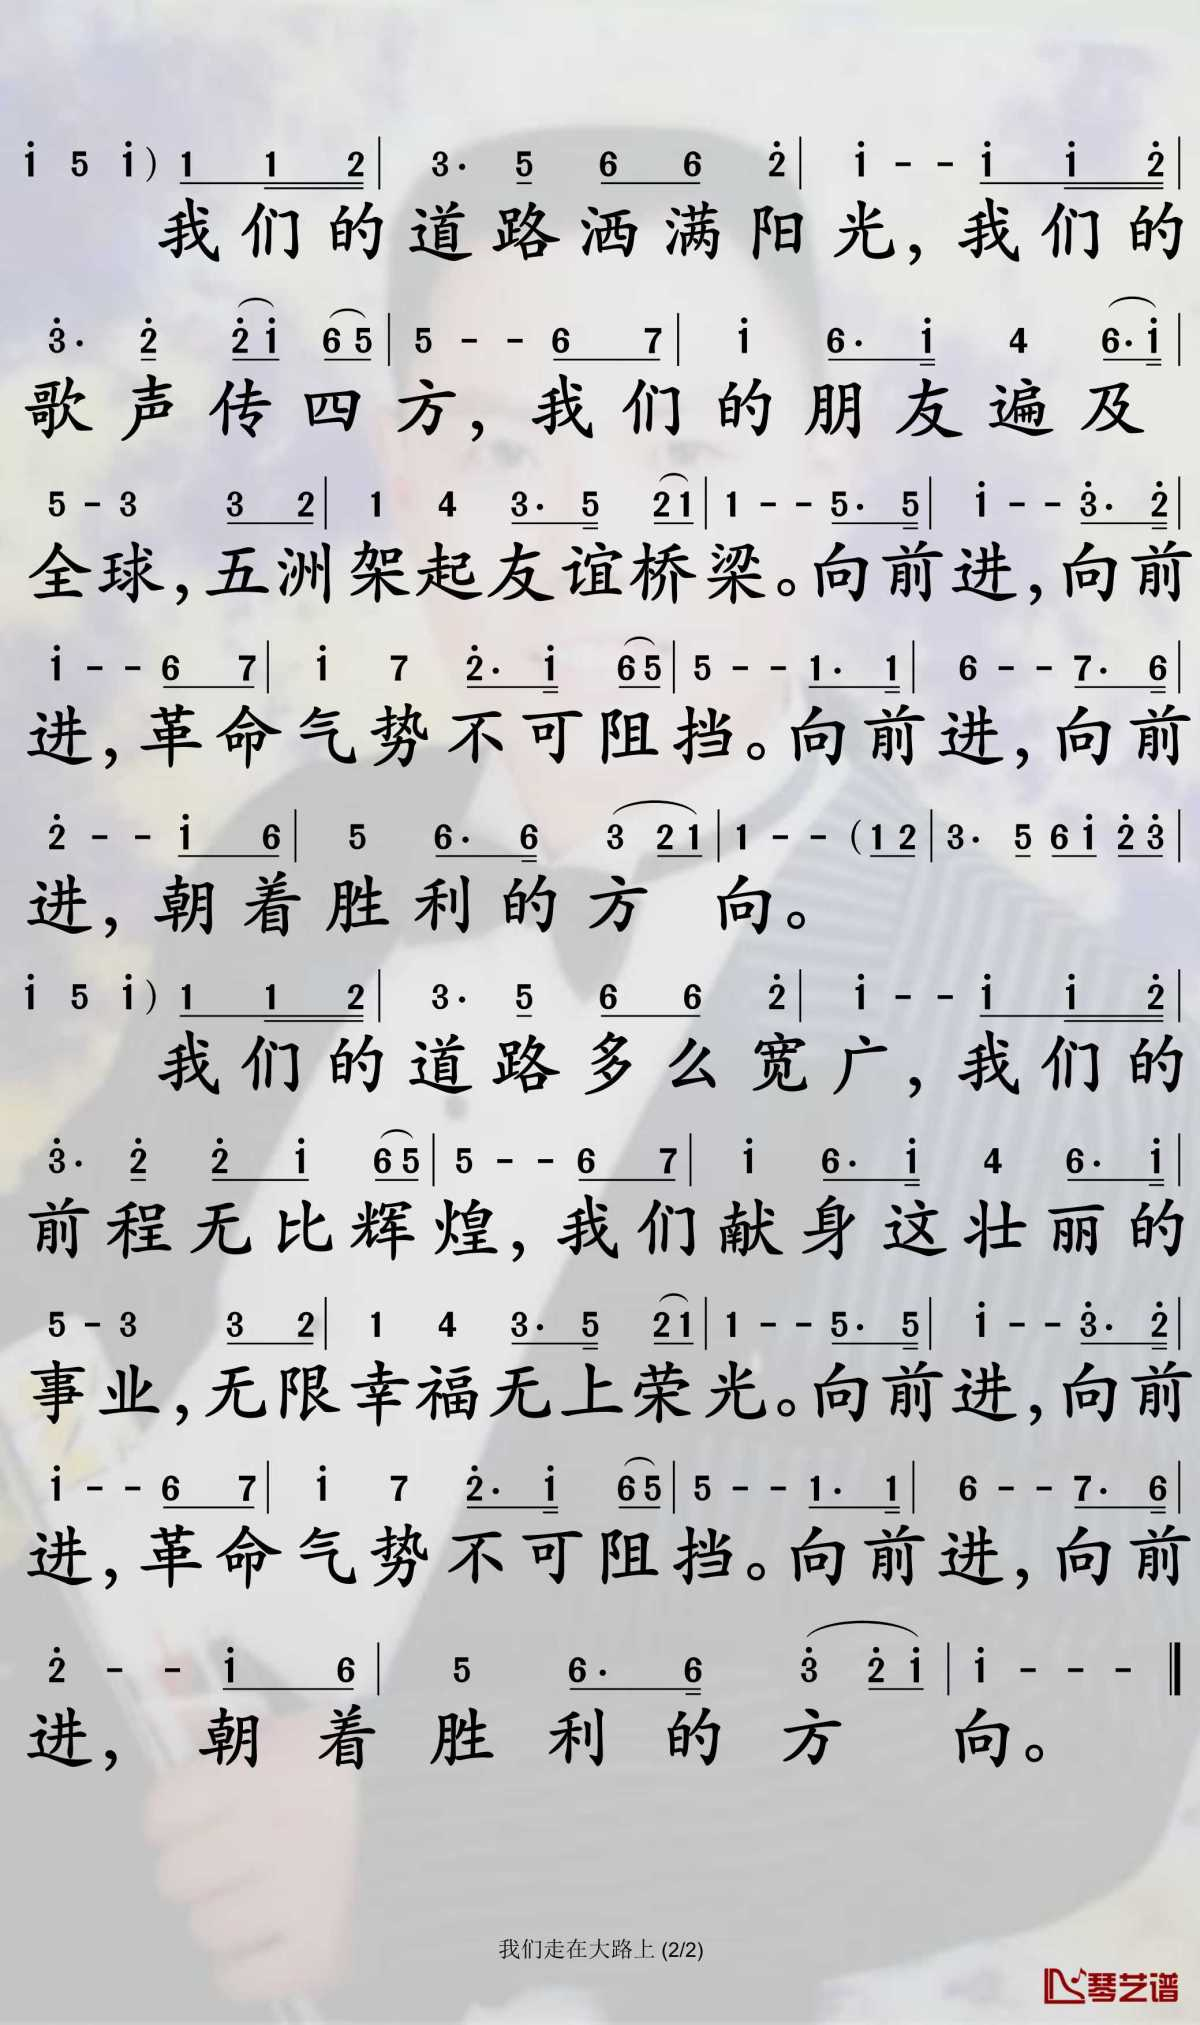 i 5 i) 1 1 2 | 3· 5 6 6 2̇ | i - - i i 2̇ |
我们的道路洒满阳光,我们的
3̇· 2̇ 2̇ i 6 5 | 5 - - 6 7 | i 6· i 4 6· i |
歌声传四方,我们的朋友遍及
5 - 3 3 2 | 1 4 3· 5 2 1 | 1 - - 5· 5 | i - - 3̇· 2̇ |
全球,五洲架起友谊桥梁。向前进,向前
i - - 6 7 | i 7 2̇· i 6 5 | 5 - - 1· 1 | 6 - - 7· 6 |
进,革命气势不可阻挡。向前进,向前
2̇ - - i 6 | 5 6· 6 3 2 1 | 1 - - (1 2 | 3· 5 6 i 2̇ 3̇ |
进,朝着胜利的方向。
i 5 i) 1 1 2 | 3· 5 6 6 2̇ | i - - i i 2̇ |
我们的道路多么宽广,我们的
3̇· 2̇ 2̇ i 6 5 | 5 - - 6 7 | i 6· i 4 6· i |
前程无比辉煌,我们献身这壮丽的
5 - 3 3 2 | 1 4 3· 5 2 1 | 1 - - 5· 5 | i - - 3̇· 2̇ |
事业,无限幸福无上荣光。向前进,向前
i - - 6 7 | i 7 2̇· i 6 5 | 5 - - 1· 1 | 6 - - 7· 6 |
进,革命气势不可阻挡。向前进,向前
2̇ - - i 6 | 5 6· 6 3̇ 2̇ i | i - - - ‖
进,朝着胜利的方向。
我们走在大路上 (2/2)
琴艺谱